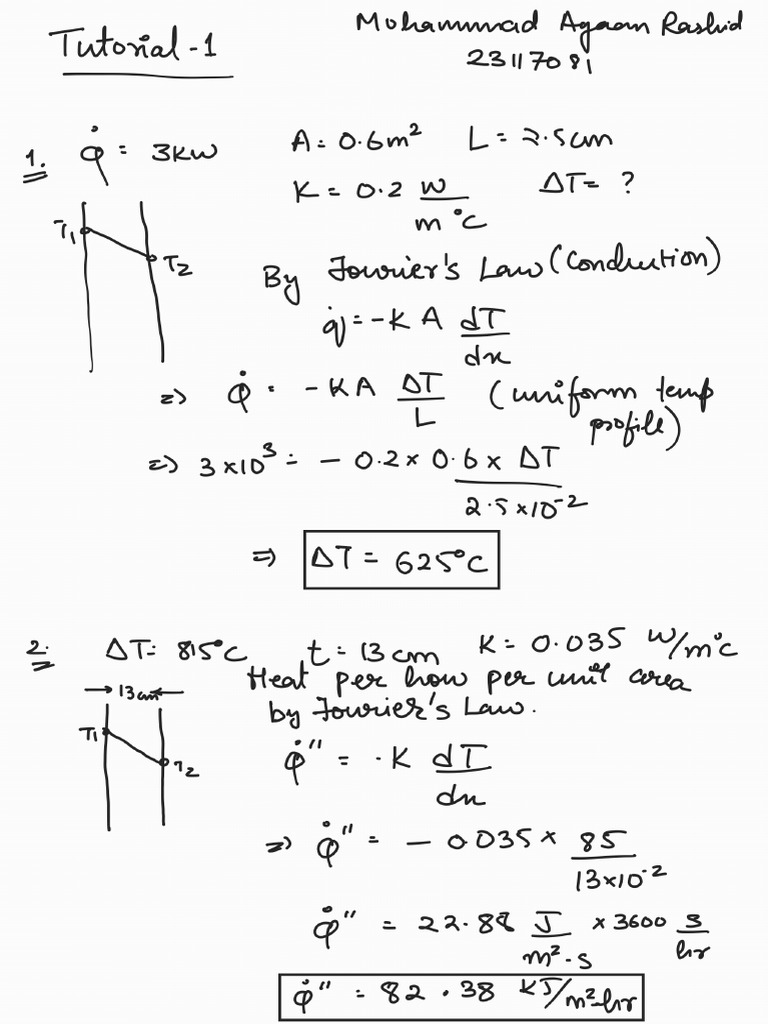 Tutorial-1
Mohammad Ayaan Rashid
23117081
1. q̇ = 3KW A = 0.6m² L = 2.5cm
K = 0.2 W/m°C ΔT = ?
T₁ T₂
By Fourier's Law (Conduction)
q̇ = -KA dT/dx
=> q̇ = -KA ΔT/L (uniform temp profile)
=> 3×10³ = - 0.2×0.6×ΔT/2.5×10⁻²
=> ΔT = 625°C
2. ΔT = 815°C t = 13cm K = 0.035 W/m°C
Heat per hour per unit area
→13cm←
by Fourier's Law.
T₁ T₂
q̇" = -K dT/dx
=> q̇" = - 0.035 × 85/13×10⁻²
q̇" = 22.88 J/m²-s × 3600 s/hr
q̇" = 82.38 KJ/m²-hr